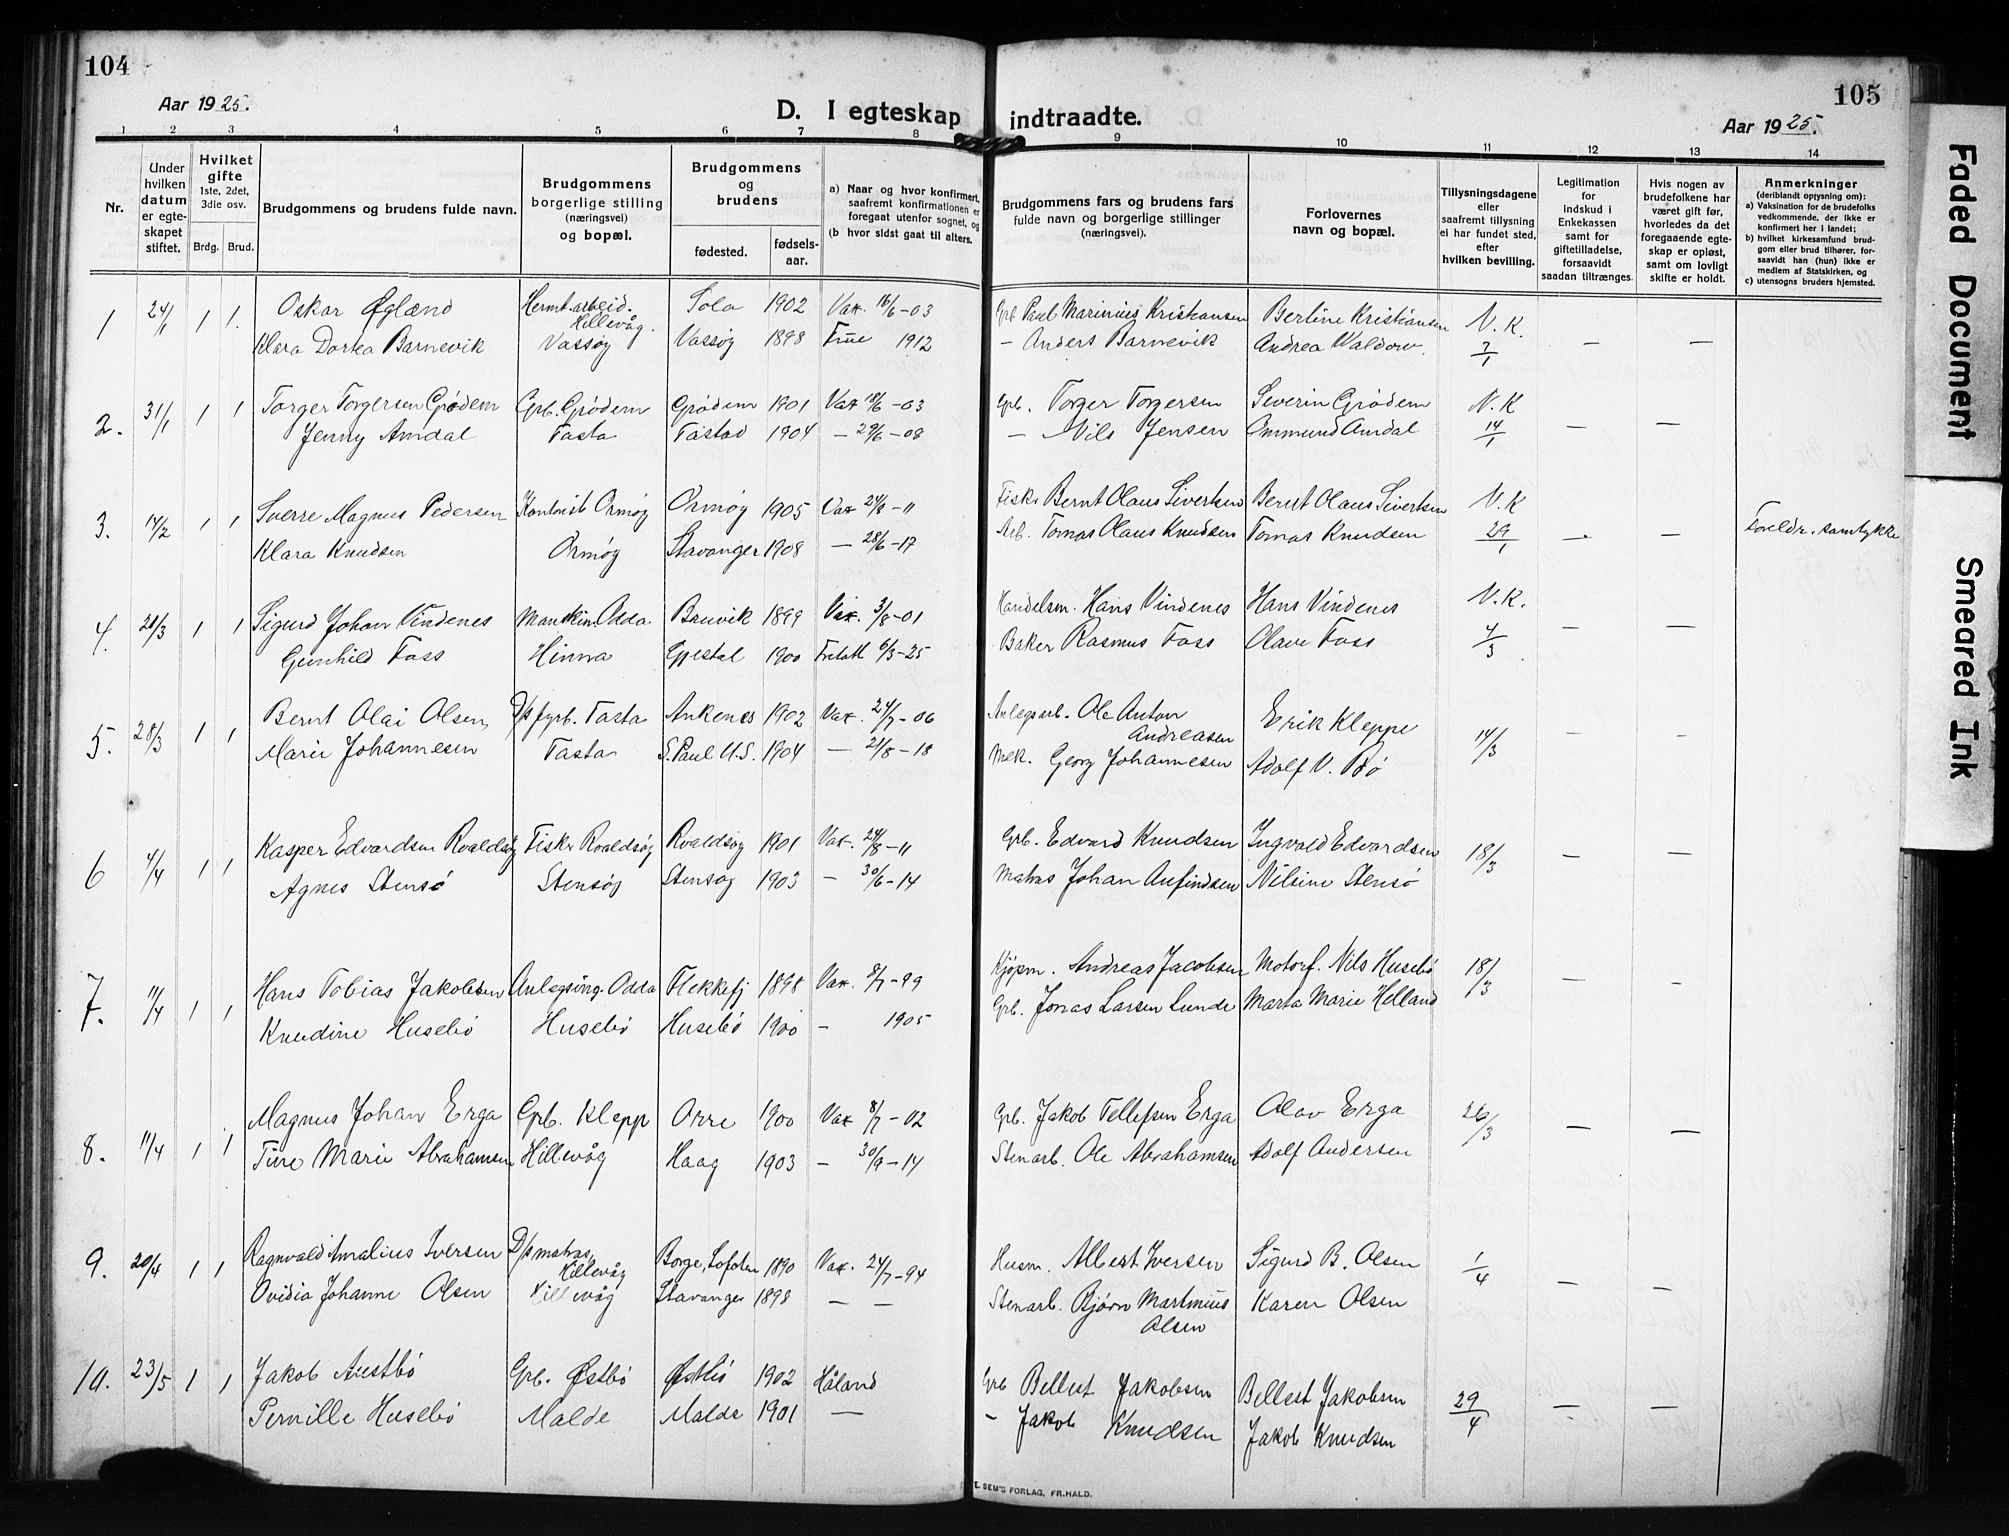 104
Aar 1925.
D. I egteskap
1 2 3 4 5 6 7 8
Nr.
Under hvilken datum er egteskapet stiftet.
Hvilket gifte 1ste, 2det, 3die osv.
Brdg. Brud.
Brudgommens og brudens fulde navn.
Brudgommens borgerlige stilling (næringsvei) og bopæl.
Brudgommens og brudens
fødested. fødselsaar.
a) Naar og hvor konfirmert, saafremt konfirmationen er foregaat utenfor sognet, og
(b hvor sidst gaat til alters.
1 24/1 1 1. Oskar Øglænd Hermt.arbeid. Hillevåg. Sola 1902 Vax. 16/6-03
Klara Dortea Barnevik Vassøy Vassøy 1898 1912
2. 31/1 1 1 Torger Torgersen Grødem Gpb. Grødem Grødem 1901 Vax 18/6-03
Jenny Amdal Tasta Tastad 1904 — 29/6-08
3. 14/2 1 1 Sverre Magnus Pedersen Kontorist Ormøy Ormøy 1905 Vax 24/8-11
Klara Knudsen Ormøy Stavanger 1908 — 28/6-17
4. 21/3 1 1 Sigurd Johan Vindenes Odda Bauvik 1899 Vax. 3/8-01
Gunhild Foss Hinna Gjestal 1900 6/3-25
5. 28/3 1 1 Bernt Olai Olsen D/s fyrb. Tasta Ankenes 1902 Vax. 24/7-06
Marie Johannesen Tasta S. Paul U.S. 1904 — 21/8-18
6 4/4 1 1 Kasper Edvardsen Roaldsøy Fisker Roaldsøy Roaldsøy 1901 Vax. 24/8-11
Agnes Stensø Stensøy Stensøy 1903 — 30/6-14
7. 11/4 1 1 Hans Tobias Jakobsen Anlegsing. Odda Flekkefj 1898 Vax. 8/7-99
Knudine Husebø Husebø Husebø 1900 — 1905
8. 11/4 1 1 Magnus Johan Erga Gpb. Klepp Orre 1900 Vax 8/7-02
Tine Marie Abrahamsen Hillevåg Haag 1903 — 30/9-14
9. 20/4 1 1 Ragnvald Amalius Iversen D/s matros, Hillevåg Borge, Lofoten 1890 Vax. 24/7-94
Ovidia Johanne Olsen Hillevåg Stavanger 1898 — —
10. 23/5 1 1 Jakob Austbø Gpb. Østbø Østbø 1902 Håland
Pernille Husebø Malde Malde 1901 —
105
indtraadte.
Aar 1925.
9 10 11 12 13 14
Brudgommens fars og brudens fars fulde navn og borgerlige stillinger (næringsvei).
Forlovernes navn og bopæl.
Tillysningsdagene eller saafremt tillysning ei har fundet sted, efter hvilken bevilling.
Legitimation for indskud i Enkekassen samt for giftetilladelse, forsaavidt saadan tiltrænges.
Hvis nogen av brudefolkene har været gift før, hvorledes da det foregaaende egteskap er opløst, samt om lovligt skifte er holdt.
Anmerkninger
(deriblandt oplysning om):
a) Vaksination for de brudefolks vedkommende, der ikke er konfirmert her i landet;
b) hvilket kirkesamfund brudgom eller brud tilhører, forsaavidt han (hun) ikke er medlem af Statskirken, og
c) utensogns bruders hjemsted.
Gpb Paul Marinius Kristiansen Bertine Kristiansen N. K. 7/1 — —
— Anders Barnevik Andrea Waldow.
Gpb. Torger Torgersen Severin Grødem N. K 14/1 — —
— Nils Jensen Ommund Amdal
Fisker Bernt Olaus Sivertsen Bernt Olaus Sivertsen N. K 29/1 — — Foreldr. samtykke
Arb. Tomas Olaus Knudsen Tomas Knudsen
Handelsm. Hans Vindenes Hans Vindenes N. K. 4/3 — —
Baker Rasmus Foss Olav Foss
Anlegsarb. Ole Anton Andreasen Erik Kleppe 14/3 — -
Mek. Georg Johannesen Adolf V. Bø
Gpb. Edvard Knudsen Ingvald Edvardsen 18/3 — —
Matros Johan Anfindsen Nilsine Stensø
Kjøpm. Andreas Jacobsen Motorf. Nils Husebø 18/3 — -
Gpb. Jonas Larsen Lunde Marta Marie Helland
Gpb. Jakob Tellefsen Erga Olav Erga 26/3 — —
Stenarb. Ole Abrahamsen Adolf Andersen
Husm. Albert Iversen Sigurd B. Olsen 1/4 — —
Stenarb. Bjørn Martinius Olsen Karen Olsen
Gpb Bellest Jakobsen Bellest Jakobsen 29/4 — —
— Jakob Knudsen Jakob Knudsen
E. SEM'S FORLAG, FR.HALD.
Faded Document
Smeared Ink